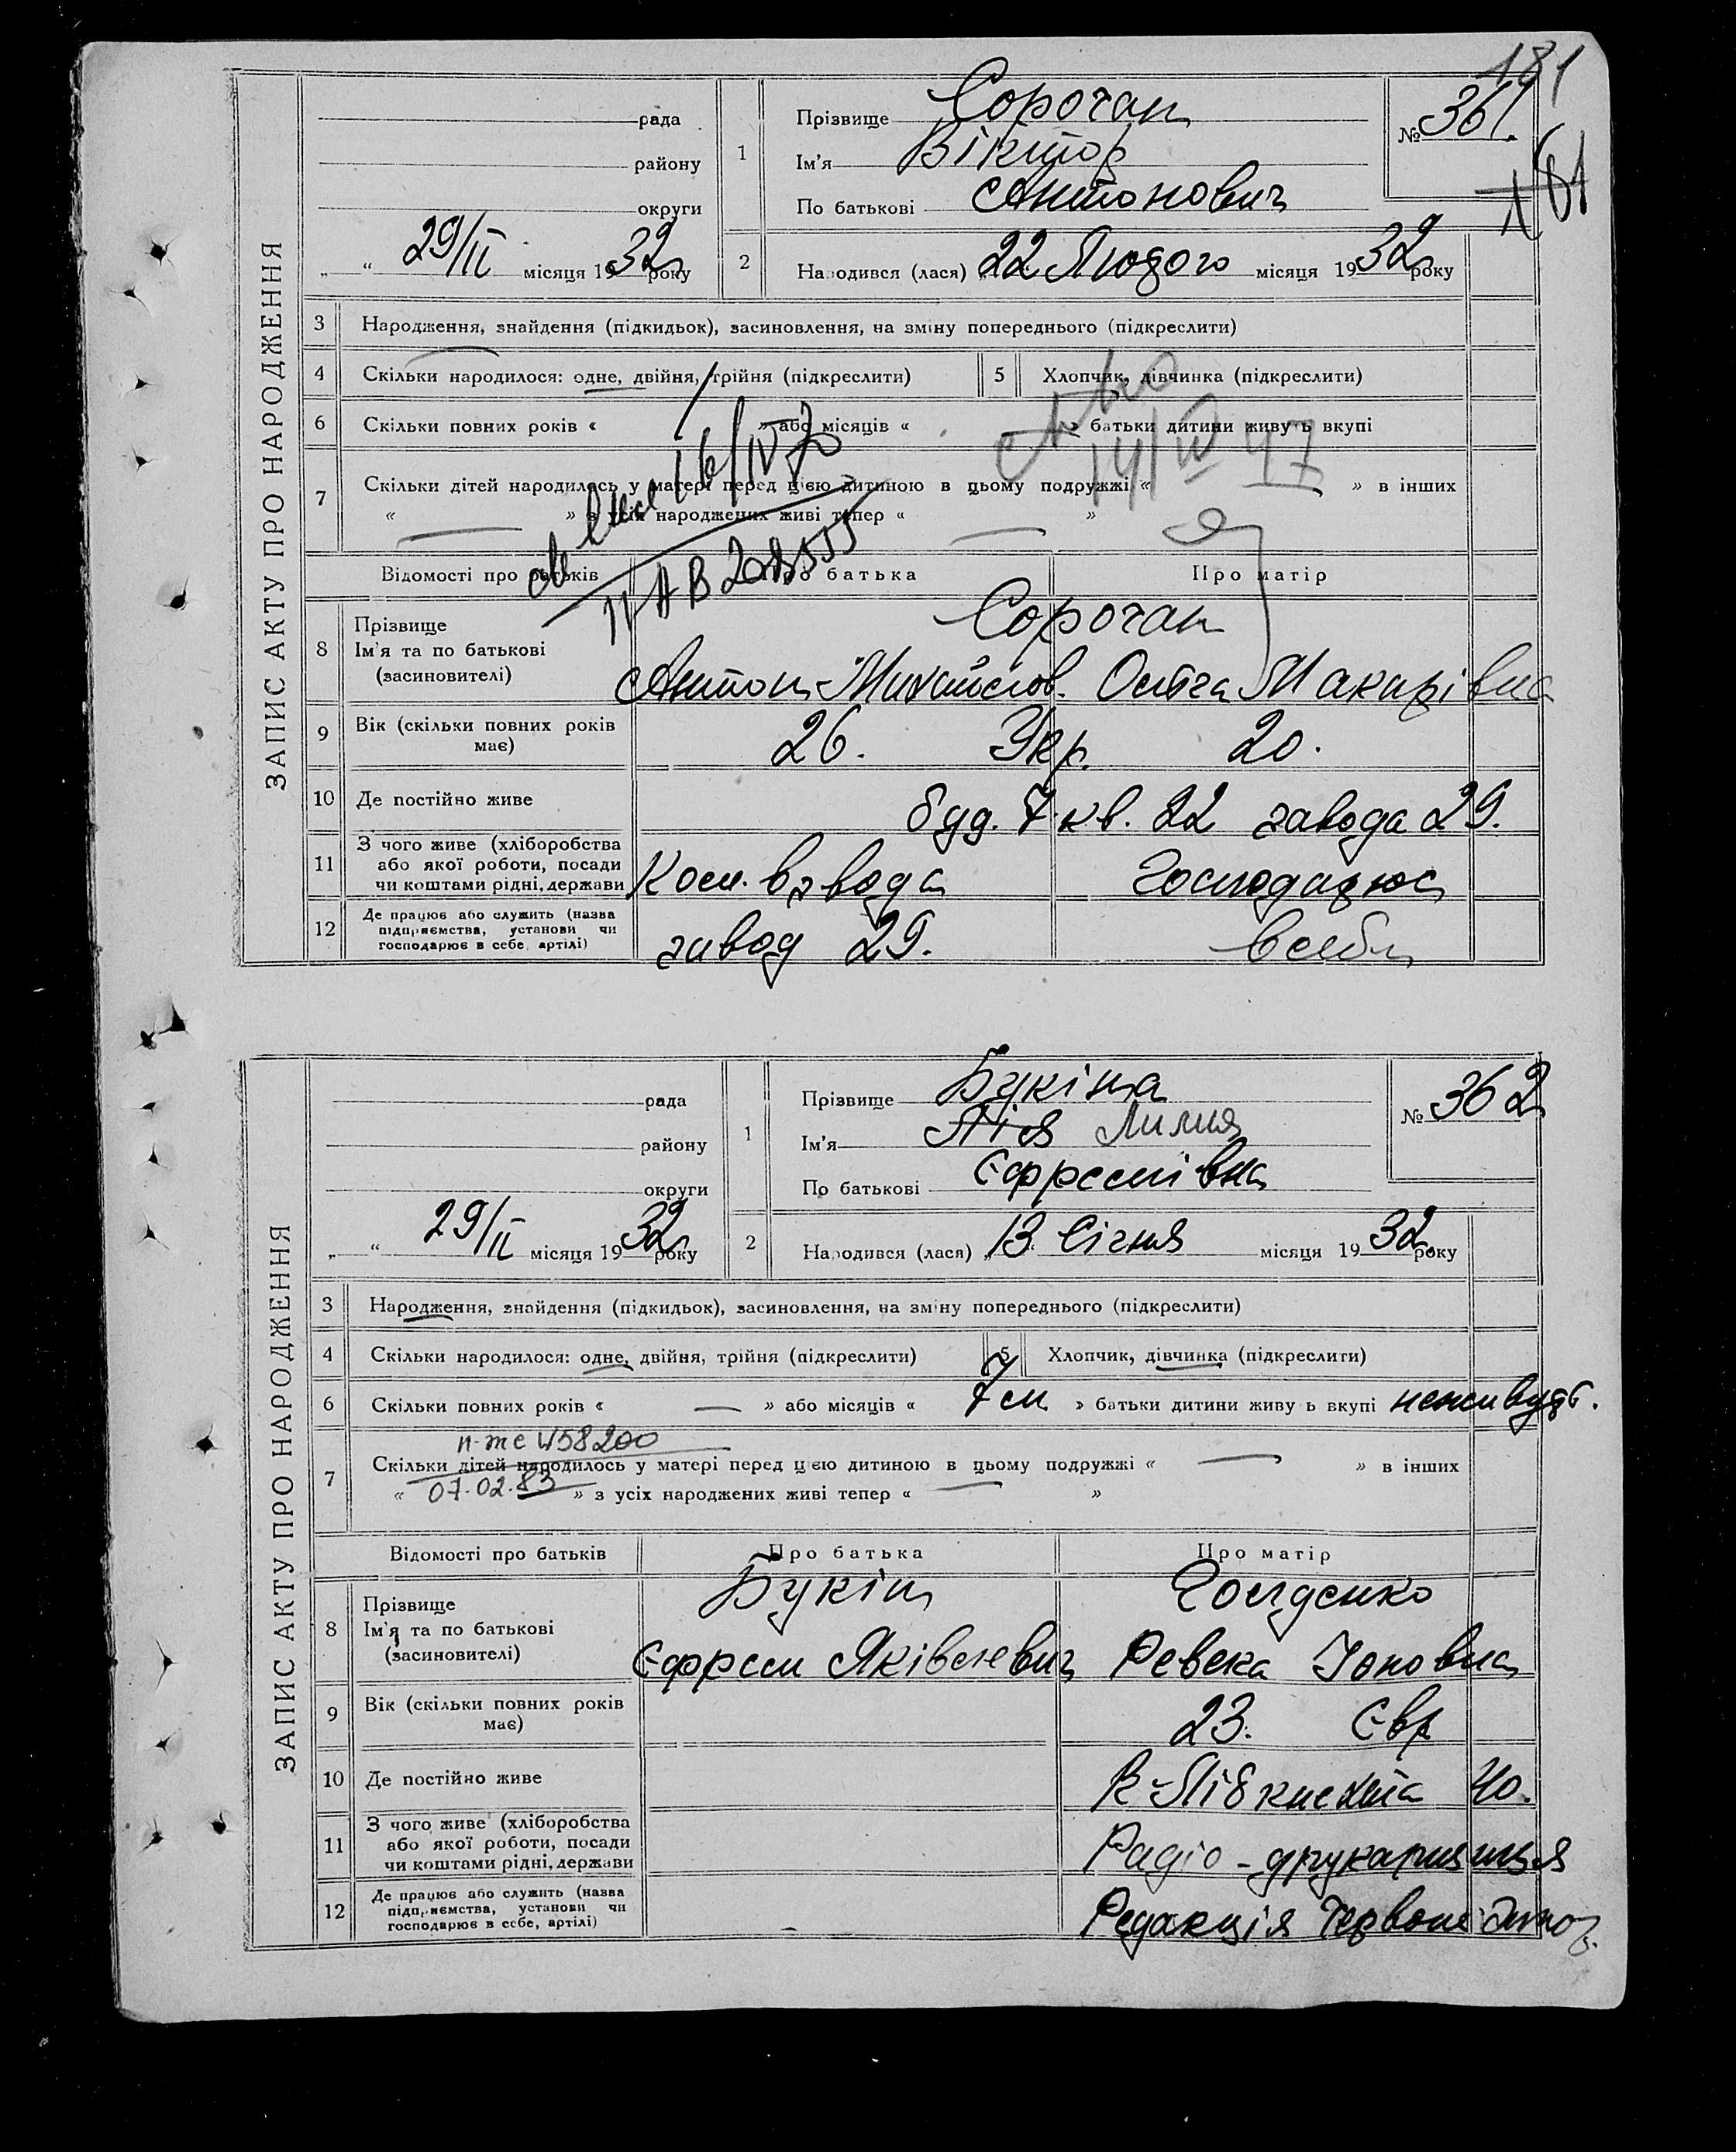 181
ЗАПИС АКТУ ПРО НАРОДЖЕННЯ
рада
району
округи
„ “ 29/II місяця 1932 року
1
Прізвище Сорочан
Ім'я Віктор
По батькові Антонович
№ 361.
181
2
Народився (лася) 22 Лютого місяця 1932 року
3 Народження, знайдення (підкидьок), засиновлення, на зміну попереднього (підкреслити)
4 Скільки народилося: одне, двійня, трійня (підкреслити)
5 Хлопчик, дівчинка (підкреслити)
6 Скільки повних років « » або місяців « » батьки дитини живуть вкупі
16/IV 70
14/IV 47
7 Скільки дітей народилось у матері перед цією дитиною в цьому подружжі « » в інших
« » з усіх народжених живі тепер « »
Відомості про батьків Про батька Про матір
8 Прізвище
Ім'я та по батькові
(засиновителі)
Сорочан
Антон Михайлов. Ольга Макарівна
9 Вік (скільки повних років має) 26. Укр. 20.
10 Де постійно живе буд. 7 кв. 22 завода 29.
11 З чого живе (хліборобства
або якої роботи, посади
чи коштами рідні, держави
Ком. взвода Господарює
12 Де працює або служить (назва
підприємства, установи чи
господарює в себе, артілі)
завод 29.
ЗАПИС АКТУ ПРО НАРОДЖЕННЯ
рада
району
округи
„ “ 29/II місяця 1932 року
1
Прізвище Букіна
Ім'я Лія Лилия
По батькові Єфремівна
№ 362
2
Народився (лася) 13 Січня місяця 1932 року
3 Народження, знайдення (підкидьок), засиновлення, на зміну попереднього (підкреслити)
4 Скільки народилося: одне, двійня, трійня (підкреслити)
5 Хлопчик, дівчинка (підкреслити)
6 Скільки повних років « — » або місяців « 7 м » батьки дитини живуть вкупі неживуть.
п-же 458200
7 Скільки дітей народилось у матері перед цією дитиною в цьому подружжі « — » в інших
« 07.02.83 » з усіх народжених живі тепер « — »
Відомості про батьків Про батька Про матір
8 Прізвище
Ім'я та по батькові
(засиновителі)
Букін Голденко
Єфрем Яківлевич Ревека Іоновна
9 Вік (скільки повних років має) 23. Євр
10 Де постійно живе К-Лібкнехта 40.
11 З чого живе (хліборобства
або якої роботи, посади
чи коштами рідні, держави
Радіо-друкарниця
12 Де працює або служить (назва
підприємства, установи чи
господарює в себе, артілі)
Редакція Червоне Запор.